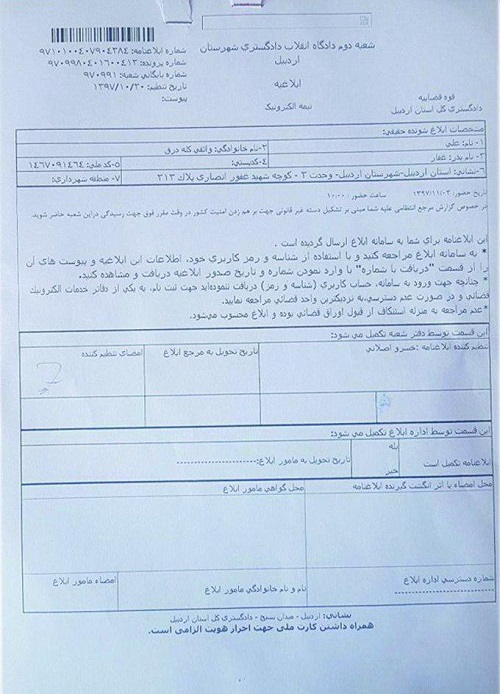 شعبه دوم دادگاه انقلاب دادگستری شهرستان
اردبیل
ابلاغیه
نیمه الکترونیک
شماره ابلاغنامه: ۹۷۱۰۱۰۰۴۰۷۹۰۴۳۸۴
شماره پرونده: ۹۷۰۹۹۸۰۴۰۱۶۰۰۴۱۳
شماره بایگانی شعبه: ۹۷۰۹۹۱
تاریخ تنظیم: ۱۳۹۷/۱۰/۳۰
پیوست:
قوه قضاییه
دادگستری کل استان اردبیل
مشخصات ابلاغ شونده حقیقی:
۱- نام: علی
۲-نام خانوادگی: واثقی کله درق
۳- نام پدر: غفار
۴-کدپستی:
۵-کدملی: ۱۴۶۷۰۹۱۴۶۴
۶-نشانی: استان اردبیل-شهرستان اردبیل- وحدت ۳ - کوچه شهید غفور انصاری پلاک ۳۱۳
۷- منطقه شهرداری:
تاریخ حضور: ۱۳۹۷/۱۱/۰۳ ساعت حضور: ۱۰:۰۰
در خصوص گزارش مرجع انتظامی علیه شما مبنی بر تشکیل دسته غیر قانونی جهت بر هم زدن امنیت کشور در وقت مقرر فوق جهت رسیدگی دراین شعبه حاضر شوید.
این ابلاغنامه برای شما به سامانه ابلاغ ارسال گردیده است .
* به سامانه ابلاغ مراجعه کنید و با استفاده از شناسه و رمز کاربری خود، اطلاعات این ابلاغیه و پیوست های آن
را از قسمت "دریافت با شماره" با وارد نمودن شماره و تاریخ صدور ابلاغیه دریافت و مشاهده کنید.
* چنانچه جهت ورود به سامانه، حساب کاربری (شناسه و رمز) دریافت ننموده‌اید جهت ثبت نام، به یکی از دفاتر خدمات الکترونیک
قضائی و در صورت عدم دسترسی،به نزدیکترین واحد قضائی مراجعه نمایید.
*عدم مراجعه به منزله استنکاف از قبول اوراق قضائی بوده و ابلاغ محسوب می‌شود.
این قسمت توسط دفتر شعبه تکمیل می شود:
تنظیم کننده ابلاغنامه :خسرو اصلانی
تاریخ تحویل به مرجع ابلاغ
امضای تنظیم کننده
این قسمت توسط اداره ابلاغ تکمیل می شود:
ابلاغنامه تکمیل است
بله
خیر
تاریخ تحویل به مامور ابلاغ:-----------------
محل امضاء یا اثر انگشت گیرنده ابلاغنامه
محل گواهی مامور ابلاغ
شماره دسترسی اداره ابلاغ
نام و نام خانوادگی مامور ابلاغ
امضاء مامور ابلاغ
نشانی: اردبیل - میدان بسیج - دادگستری کل استان اردبیل
همراه داشتن کارت ملی جهت احراز هویت الزامی است.